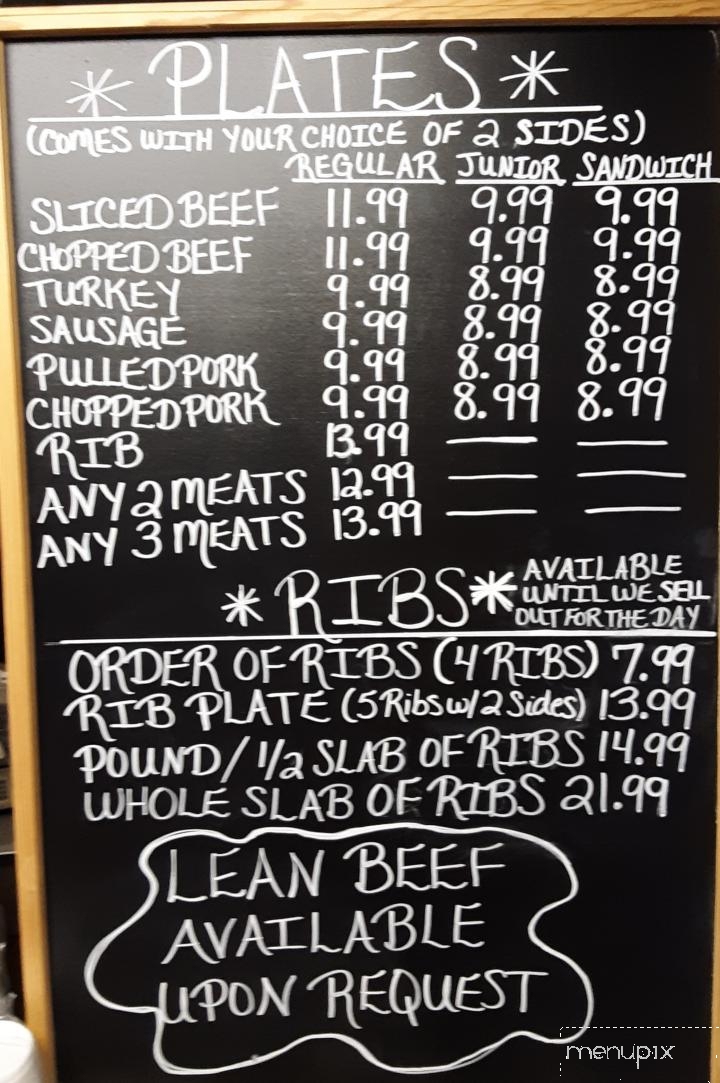 * PLATES *
(COMES WITH YOUR CHOICE OF 2 SIDES)
REGULAR JUNIOR SANDWICH
SLICED BEEF 11.99 9.99 9.99
CHOPPED BEEF 11.99 9.99 9.99
TURKEY 9.99 8.99 8.99
SAUSAGE 9.99 8.99 8.99
PULLED PORK 9.99 8.99 8.99
CHOPPED PORK 9.99 8.99 8.99
RIB 13.99 — —
ANY 2 MEATS 12.99 — —
ANY 3 MEATS 13.99 — —
* RIBS *
AVAILABLE
UNTIL WE SELL
OUT FOR THE DAY
ORDER OF RIBS (4 RIBS) 7.99
RIB PLATE (5 Ribs w/ 2 Sides) 13.99
POUND / 1/2 SLAB OF RIBS 14.99
WHOLE SLAB OF RIBS 21.99
LEAN BEEF
AVAILABLE
UPON REQUEST
menupix